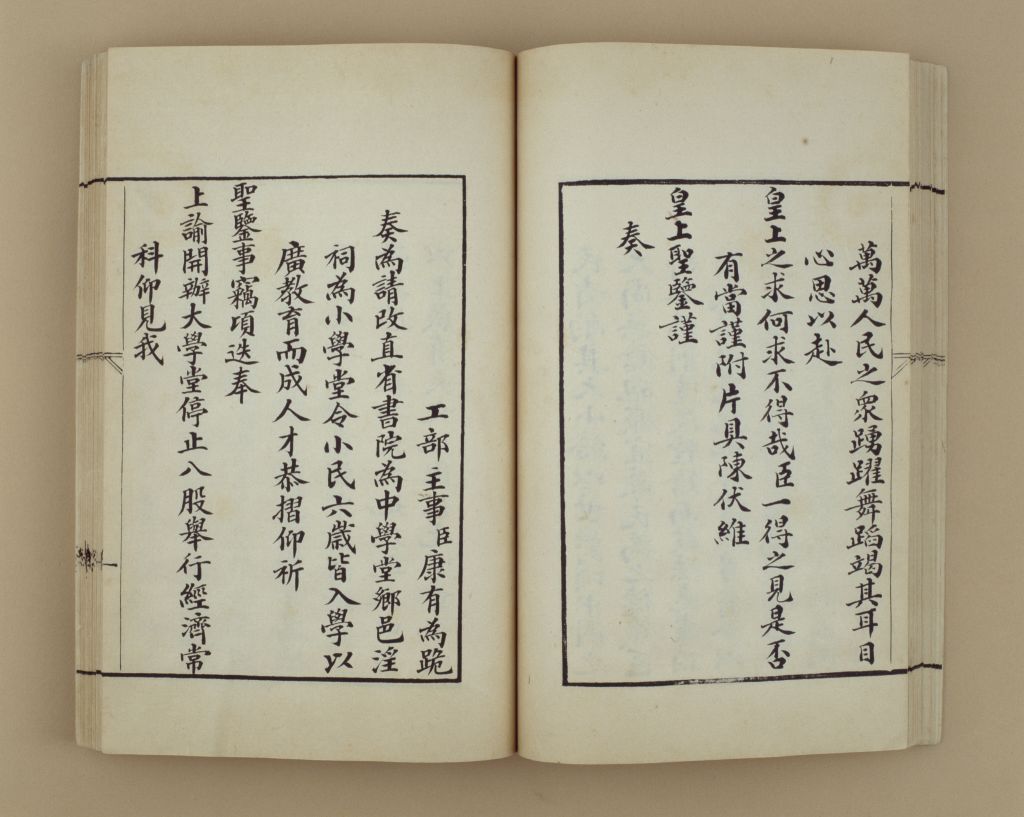 萬萬人民之衆踴躍舞蹈竭其耳目
心思以赴
皇上之求何求不得哉臣一得之見是否
有當謹附片具陳伏維
皇上聖鑒謹
奏
工部主事臣康有為跪
奏為請改直省書院為中學堂鄉邑淫
祠為小學堂令小民六歲皆入學以
廣教育而成人才恭摺仰祈
聖鑒事竊頃迭奉
上諭開辦大學堂停止八股舉行經濟常
科仰見我